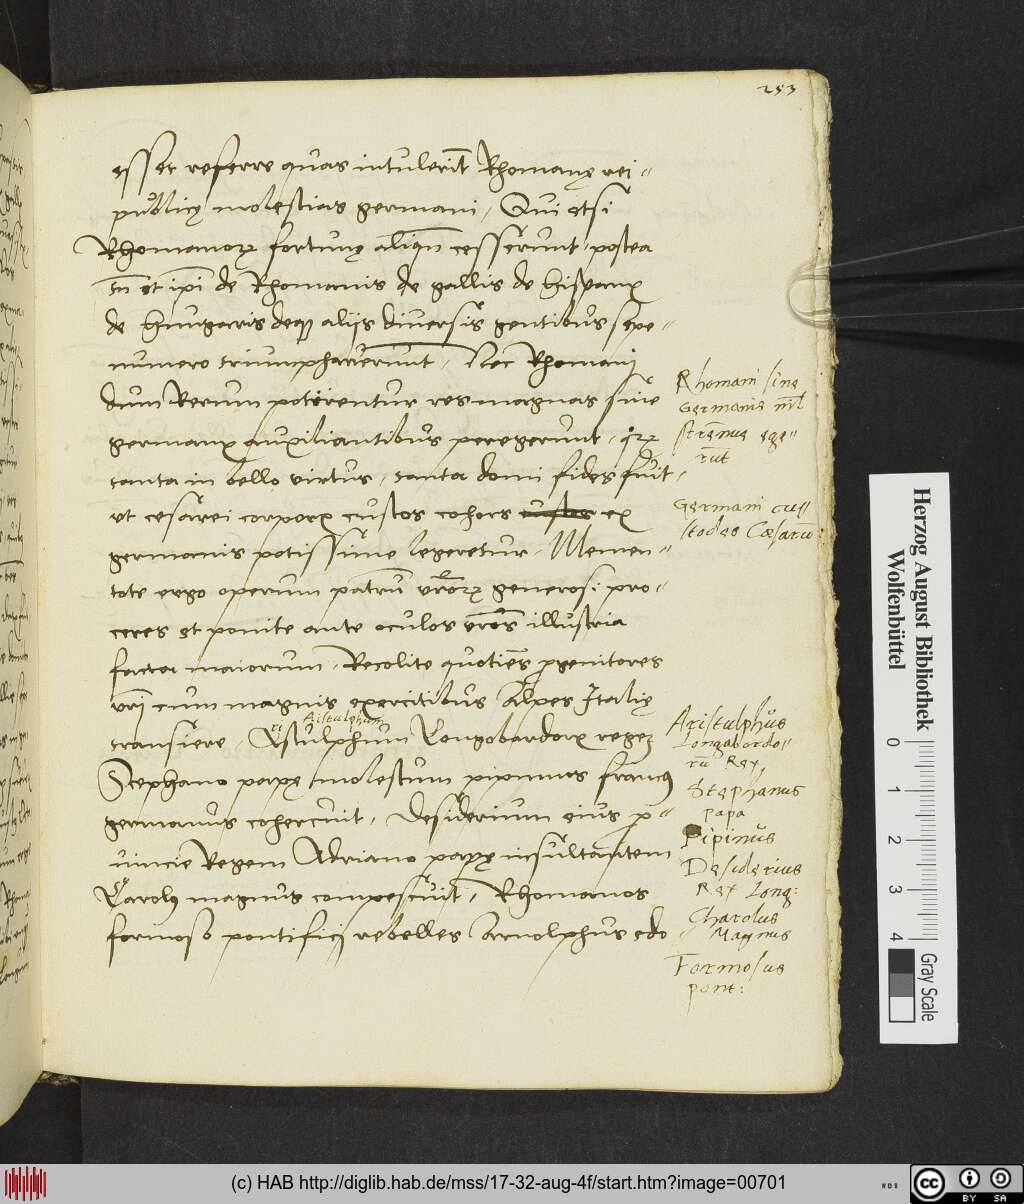 253
esset referre quas intulerĩt Rhomanę rei„
publicę molestias germani, Qui etsi
Rhomanorꝝ fortunę aliqñ cesserunt, postea
tñ et ipi de Rhomanis de gallis de hispanꝫ
de hungaris deqꝫ aliis diversis gentibus sepe„
numero triumpharuerunt, Nec Rhomani
dum Rerum potirentur res magnas sine
germanꝫ auxiliantibus peregerunt, qrꝝ
tanta in bello virtus, tanta domi fides fuit,
ut cesarei corporꝫ custos cohors custos ex
germanis potissime legeretur, Memen„
tote ergo operum patrũ vrõrꝝ generosi pro„
ceres et ponite ante oculos vrõs illustria
facta maiorum, Recolite quotiẽs pgenitores
vrĩ cum magnis exercitibus Alpes Italię
Aistulphum
transiere Astulphum Longobardorꝫ regeꝫ
Stephano papę molestum pipinus francꝰ
germanus cohercuit, Desiderium eius p„
uincie Regem Adriano papę insultantem
Carolꝰ magnus compescuit, Rhomanos
formoso pontifici rebelles Arnolphus edo„
Rhomani sine
Germanis nil
strẽnue ege„
rũt
Germani cu„
stodes Cæsarũ:
Aristulphus
Longabordo„
rũ Rex
Stephanus
papa
Pipinus
Desiderius
Rex Long:
Charolus
Magnus
Formosus
pont:
Herzog August Bibliothek
Wolfenbüttel
0 1 2 3 4
Gray Scale
(c) HAB http://diglib.hab.de/mss/17-32-aug-4f/start.htm?image=00701
WDB
cc BY SA